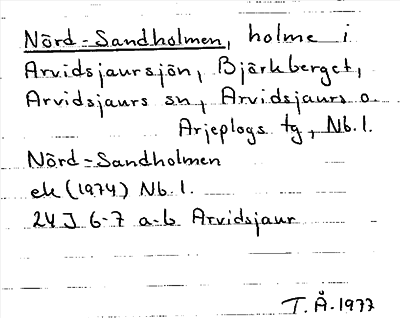 Nörd-Sandholmen, holme i
Arvidsjaursjön, Björkberget,
Arvidsjaurs sn, Arvidsjaurs o.
Arjeplogs tg, Nb.l.
Nörd-Sandholmen
ek (1974) Nb.l.
24J 6-7 a-b Arvidsjaur
T.Å. 1977